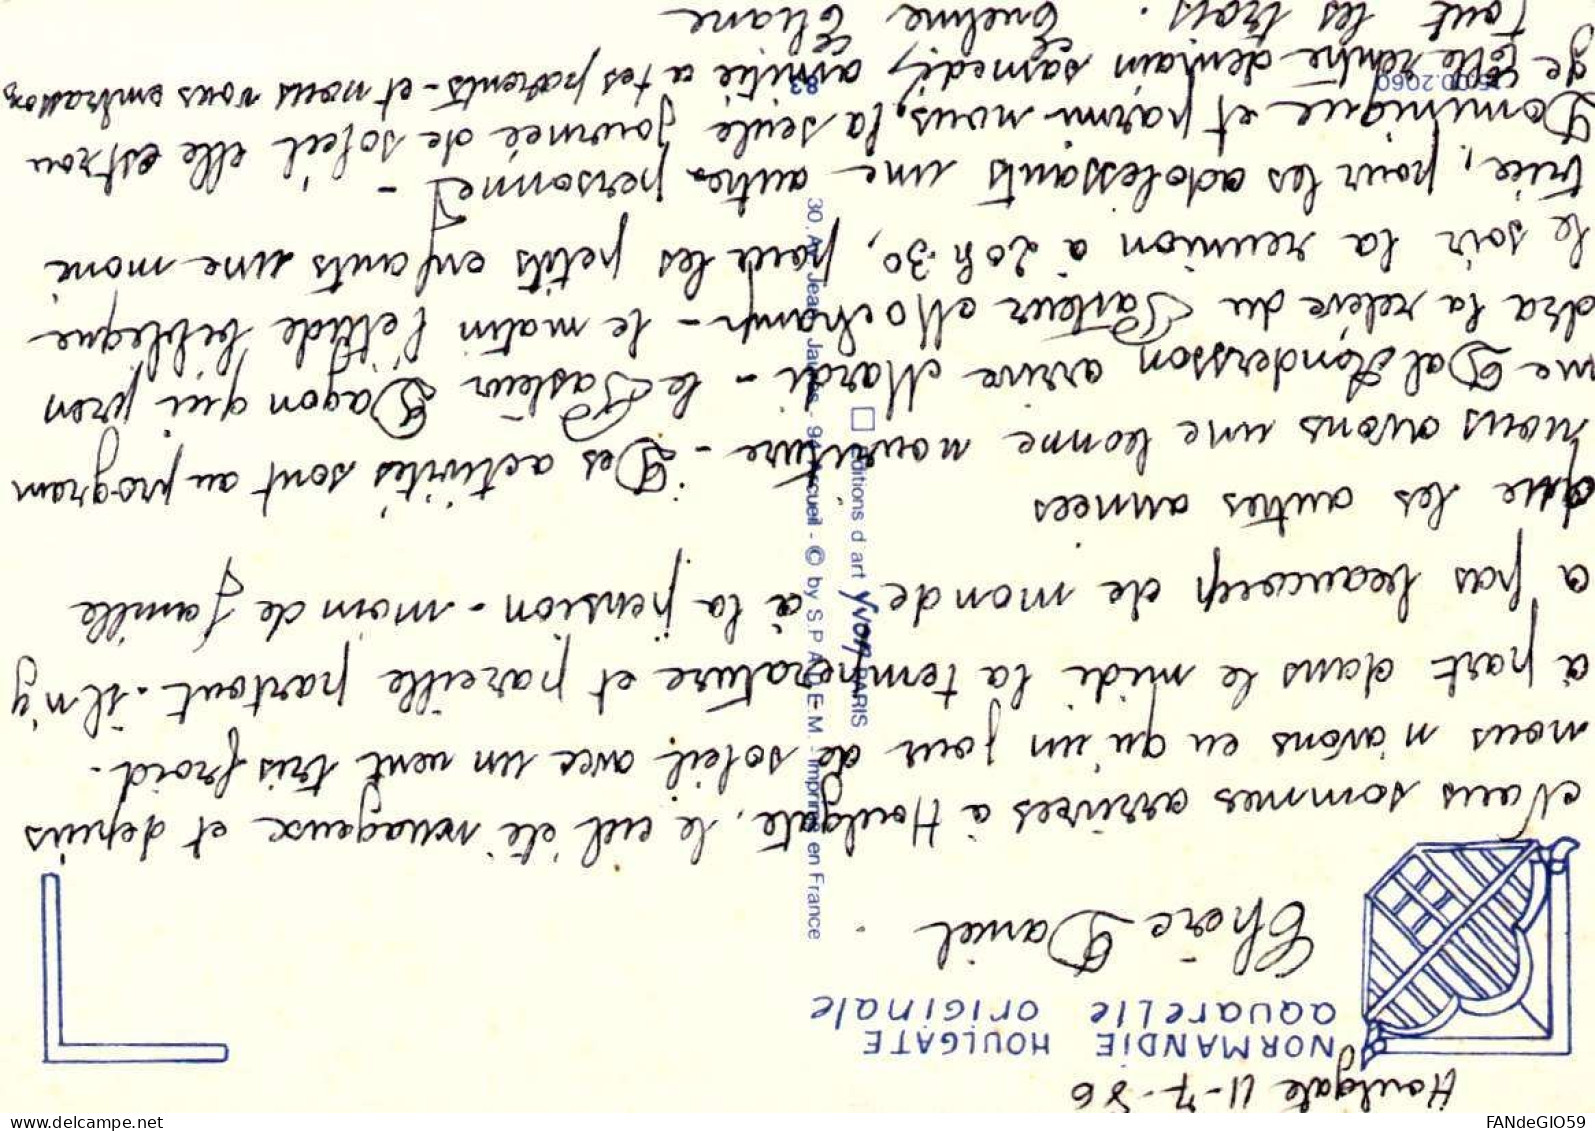 Houlgate 11-7-86
NORMANDIE HOULGATE
aquarelle originale
Chère Daniel
Nous sommes arrivées à Houlgate, le ciel été nuageux et depuis
nous n'avons eu qu'un jour de soleil avec un vent très froid.
à part dans le midi la temperature et pareille partout. il n'y
a pas beaucoup de monde à la pension - moin de famille
que les autres années
nous avons une bonne nouriture - Des activités sont au program
me Dal Andersson arrive Mardi - le Pasteur Dagon qui pren
dra la relève du Pasteur - le matin l'etude bibleque
le soir la reunion à 20h.30, pour les petits enfants une moni
trice, pour les adolessants une autre personne -
Dominique et parmi nous, la seule journée de soleil elle est rou
ge elle rentre demain samedi, amitié a tes parents - et nous vous embrassons
tout les trois. Evelyne Eliane
éditions d'art yvon PARIS
30, Av. Jean Jaurès - 94 Arcueil - © by S.P.A.D.E.M. - Imprimé en France
15.00.2060
83
www.delcampe.net
FANdeGIO59